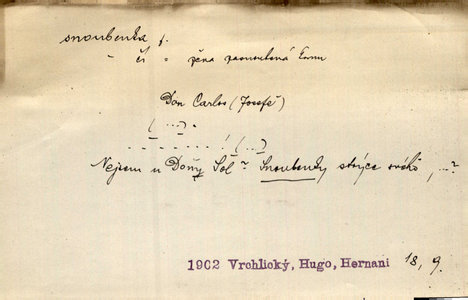 snoubenka f.
- čí = žena zasnoubená komu
Don Carlos (Josefě)
(...) -
- - - - - - - ! (...)
Nejsem u Doñy Sol? Snoubenky strýce svého, ...?
1902 Vrchlický, Hugo, Hernani 18, 9.